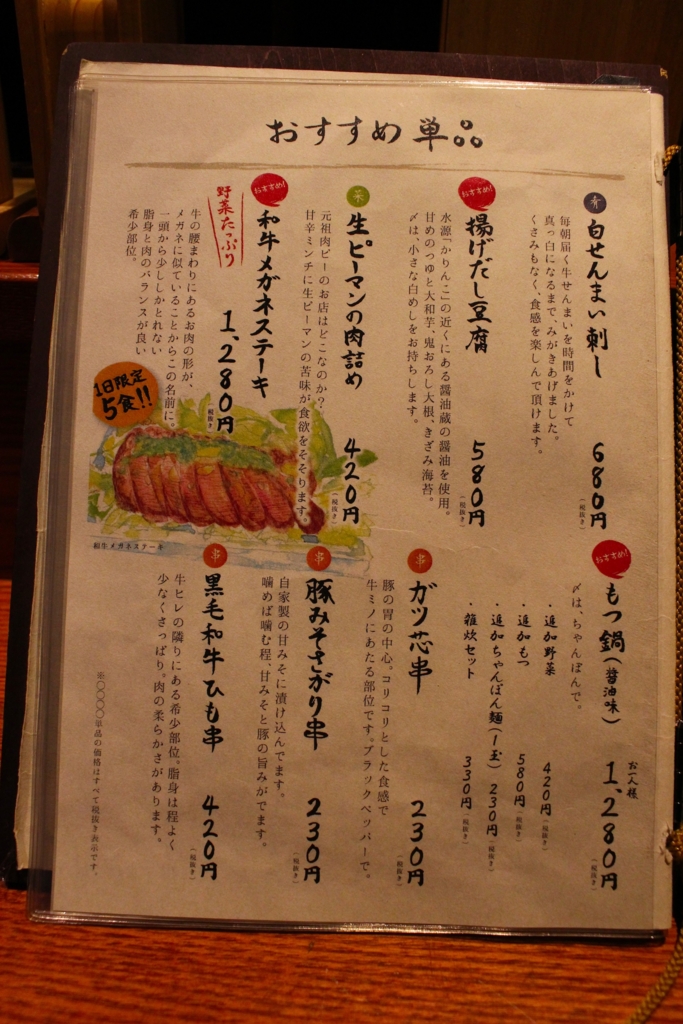 おすすめ 単品
青
白せんまい刺し
680円
(税抜き)
毎朝届く牛せんまいを時間をかけて
真っ白になるまで、みがきあげました。
くさみもなく、食感を楽しんで頂けます。
おすすめ!
揚げだし豆腐
580円
(税抜き)
水源「かりんこ」の近くにある醤油蔵の醤油を使用。
甘めのつゆと大和芋、鬼おろし大根、きざみ海苔。
〆は、小さな白めしをお持ちします。
菜
生ピーマンの肉詰め
420円
(税抜き)
元祖肉ピーのお店はどこなのか?
甘辛ミンチに生ピーマンの苦味が食欲をそそります。
おすすめ!
和牛メガネステーキ
野菜たっぷり
1,280円
(税抜き)
牛の腰まわりにあるお肉の形が、
メガネに似ていることからこの名前に。
一頭から少ししかとれない
脂身と肉のバランスが良い
希少部位。
1日限定
5食!!
和牛メガネステーキ
おすすめ!
もつ鍋(醤油味)
お一人様
1,280円
(税抜き)
〆は、ちゃんぽんで。
・追加野菜 420円(税抜き)
・追加もつ 580円(税抜き)
・追加ちゃんぽん麺(1玉) 230円(税抜き)
・雑炊セット 330円(税抜き)
串
ガツ芯串
230円
(税抜き)
豚の胃の中心。コリコリとした食感で
牛ミノにあたる部位です。ブラックペッパーで。
串
豚みそさがり串
230円
(税抜き)
自家製の甘みそに漬け込んでます。
噛めば噛む程、甘みそと豚の旨みがでます。
串
黒毛和牛ひも串
420円
(税抜き)
牛ヒレの隣りにある希少部位。脂身は程よく
少なくさっぱり。肉の柔らかさがあります。
※〇〇〇〇単品の価格はすべて税抜き表示です。